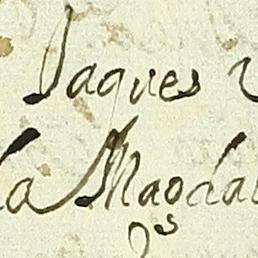 Jaques
la Magdal